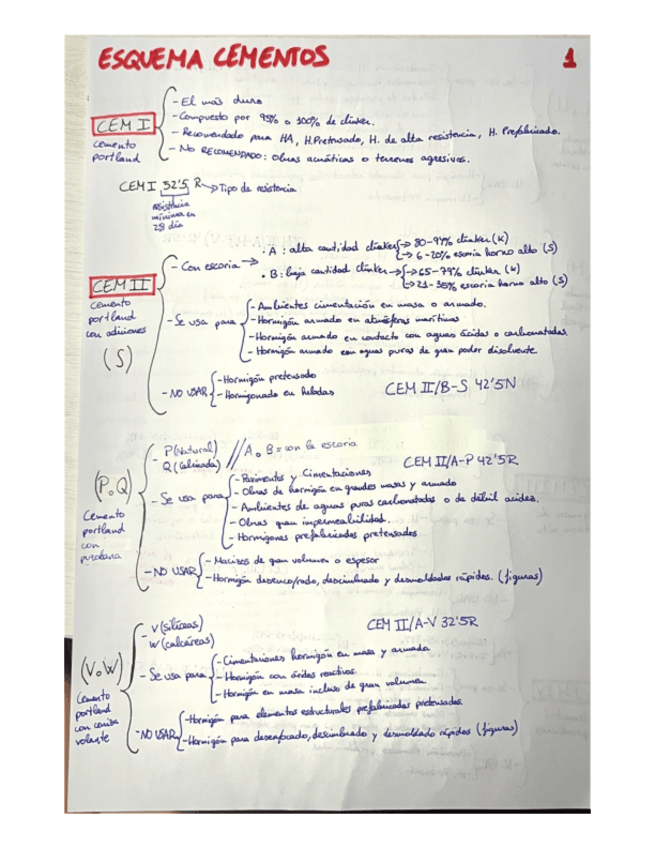 ESQUEMA CEMENTOS 1
CEM I
cemento
portland
- El más duro
- Compuesto por 95% o 100% de clinker.
- Recomendado para HA, H.Pretensado, H. de alta resistencia, H. Prefabricado.
- No RECOMENDADO: Obras acuáticas o terrenos agresivos.
CEM I 52'5 R → Tipo de resistencia
resistencia
mínima en
28 día
CEM II
cemento
portland
con adiciones
(S)
- Con escoria →
· A: alta cantidad clinker → 80-94% clinker (K)
→ 6-20% escoria horno alto (S)
· B: baja cantidad clinker → 65-79% clinker (K)
→ 21-35% escoria horno alto (S)
- Se usa para
- Ambientes cimentación en masa o armado.
- Hormigón armado en atmósferas marítimas
- Hormigón armado en contacto con aguas ácidas o carbonatadas.
- Hormigón armado con aguas puras de gran poder disolvente.
- NO USAR
- Hormigón pretensado
- Hormigonado en heladas
CEM II/B-S 42'5N
(P o Q)
Cemento
portland
con
puzolana
- P (Natural)
Q (Calcinada) // A o B = con la escoria
CEM II/A-P 42'5R
- Se usa para
- Pavimentos y Cimentaciones
- Obras de hormigón en grandes masas y armado
- Ambientes de aguas puras carbonatadas o de débil acidez.
- Obras gran impermeabilidad.
- Hormigones prefabricados pretensados
- NO USAR
- Macizos de gran volumen o espesor
- Hormigón desencofrado, descimbrado y desmoldados rápidos. (figuras)
(V o W)
Cemento
portland
con ceniza
volante
- V (silíceas)
W (calcáreas)
CEM II/A-V 32'5R
- Se usa para
- Cimentaciones hormigón en masa y armado
- Hormigón con áridos reactivos.
- Hormigón en masa incluso de gran volumen.
- NO USAR
- Hormigón para elementos estructurales prefabricados pretensados.
- Hormigón para desencofrado, descimbrado y desmoldado rápidos (figuras)